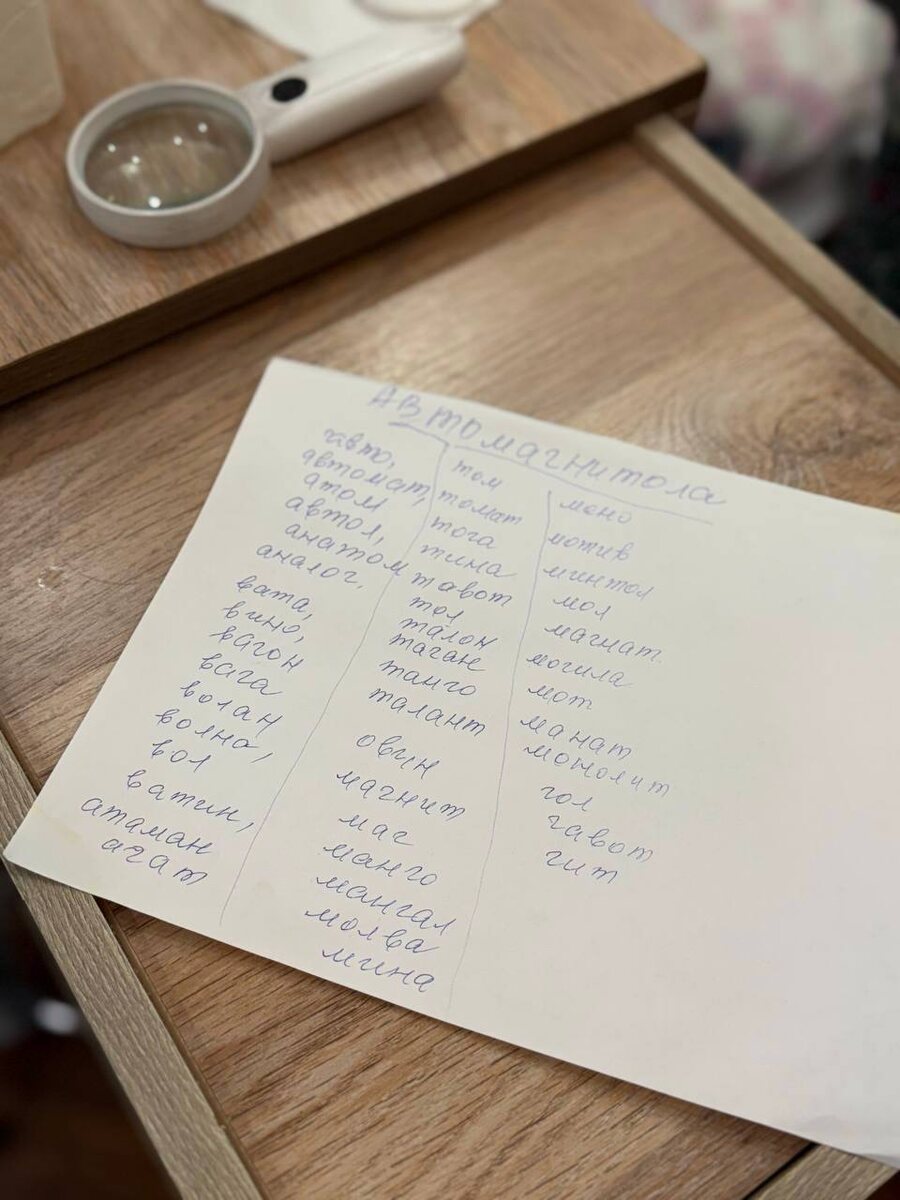 Автомагнитола
авто,
автомат,
атом
автол,
анатом
аналог,
вата,
вино,
вагон
вага
волан
волна,
вол
ватин,
атаман
агат
том
томат
тога
тина
тавот
тол
талон
таган
танго
талант
овин
магнит
маг
манго
мангал
молва
мина
моно
мотив
минтол
мол
магнат.
могила
мот
манат
монолит
гол
гавот
гит